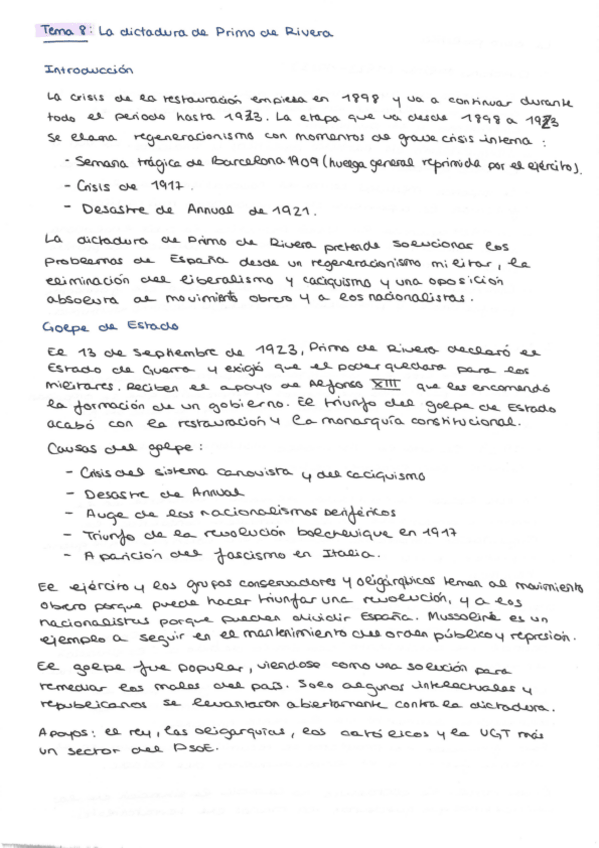 Tema 8: La dictadura de Primo de Rivera
Introducción
La crisis de la restauración empieza en 1898 y va a continuar durante
todo el periodo hasta 1923. La etapa que va desde 1898 a 1923
se llama regeneracionismo con momentos de grave crisis interna:
- Semana trágica de Barcelona 1909 (huelga general reprimida por el ejército).
- Crisis de 1917.
- Desastre de Annual de 1921.
La dictadura de Primo de Rivera pretende solucionar los
problemas de España desde un regeneracionismo militar, la
eliminación del liberalismo y caciquismo y una oposición
absoluta al movimiento obrero y a los nacionalistas.
Golpe de Estado
El 13 de septiembre de 1923, Primo de Rivera declaró el
Estado de Guerra y exigió que el poder quedara para los
militares. Reciben el apoyo de Alfonso XIII que les encomendó
la formación de un gobierno. El triunfo del golpe de Estado
acabó con la restauración y la monarquía constitucional.
Causas del golpe:
- Crisis del sistema canovista y del caciquismo
- Desastre de Annual
- Auge de los nacionalismos periféricos
- Triunfo de la revolución bolchevique en 1917
- Aparición del fascismo en Italia.
El ejército y los grupos conservadores y oligárquicos temen al movimiento
obrero porque puede hacer triunfar una revolución, y a los
nacionalistas porque pueden dividir España. Mussolini es un
ejemplo a seguir en el mantenimiento del orden público y represión.
El golpe fue popular, viendose como una solución para
remediar los males del país. Solo algunos intelectuales y
republicanos se levantaron abiertamente contra la dictadura.
Apoyos: el rey, las oligarquías, los católicos y la UGT más
un sector del PSOE.